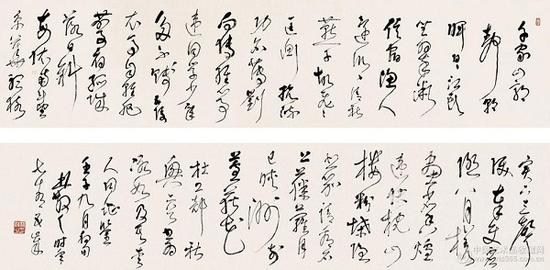 千家山郭
静朝
晖日日江楼
坐翠微
信宿渔人
还泛泛清秋
燕子故飞飞
匡衡抗疏
功名薄刘
向传经心事
违同学少年
多不贱五陵
衣马自轻肥
夔府孤城
落日斜
每依南斗望
京华听猿
实下三声
泪奉使虚
随八月槎
画省香炉
违伏枕山
楼粉堞隐
悲笳请看石
上藤萝月
已映洲前
芦荻花
杜工部秋
兴二首
壬子九月
七十五